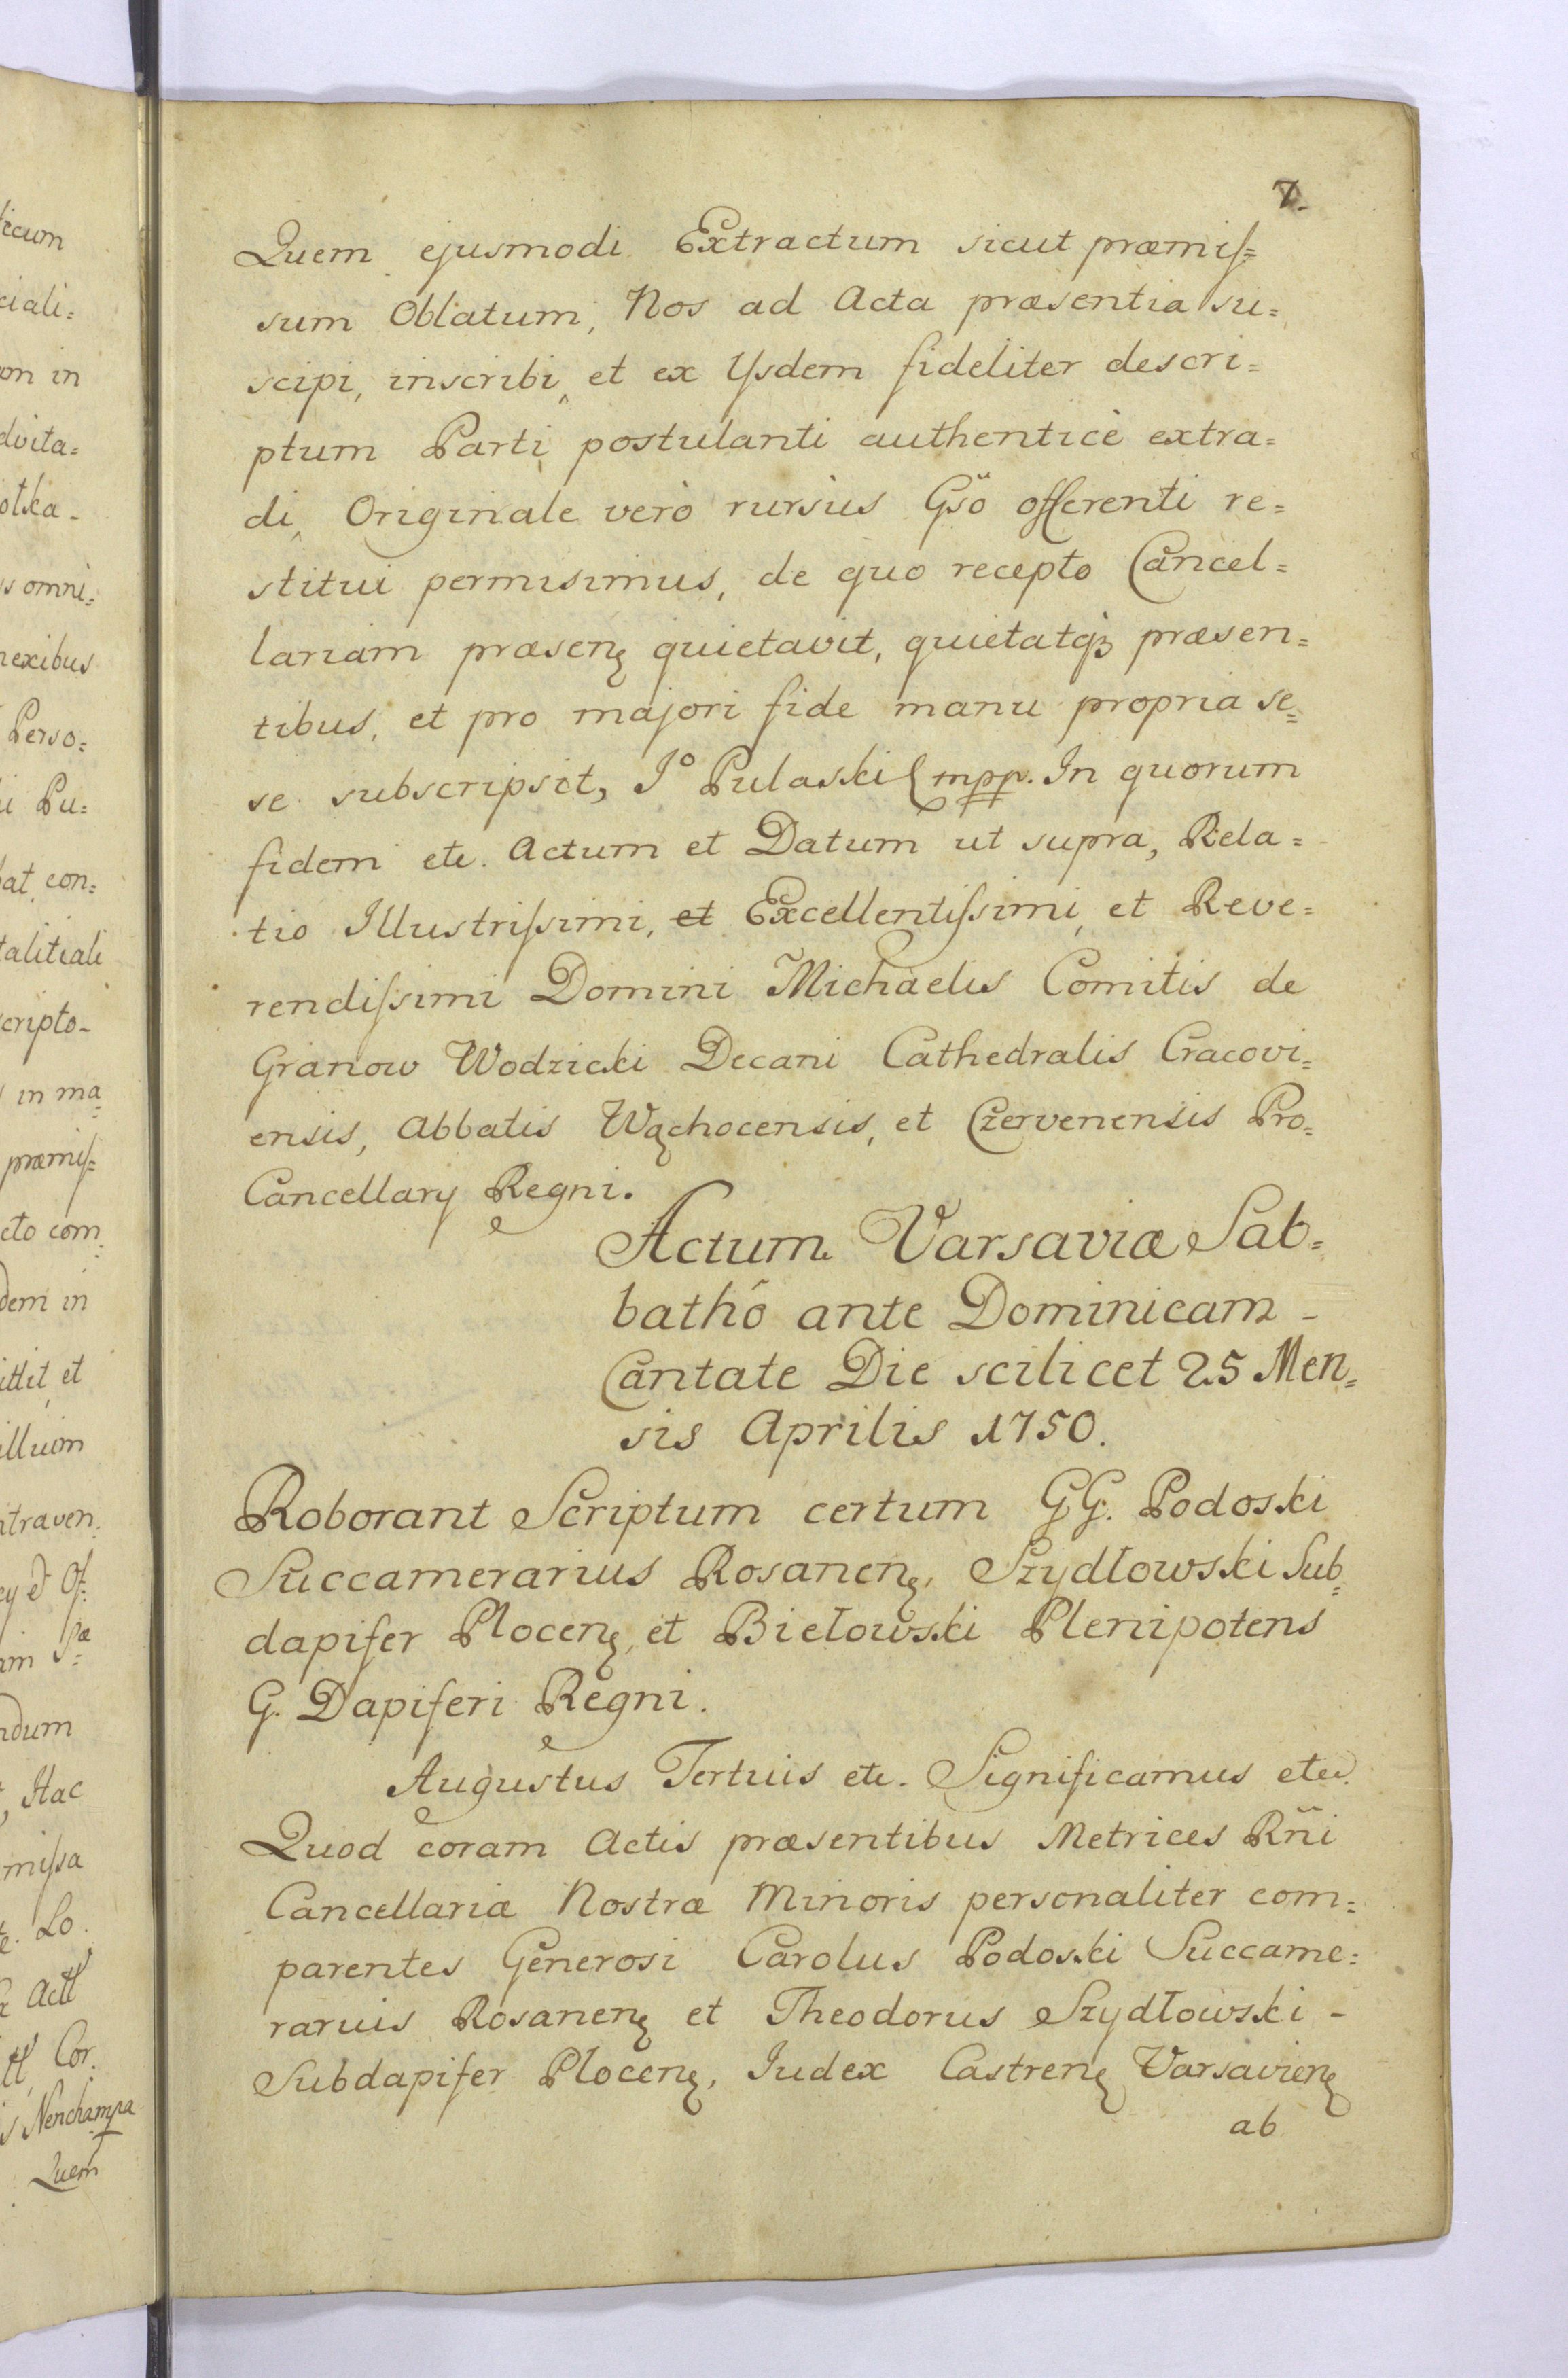 7.
Quem ejusmodi Extractum sicut præmiſ=
sum Oblatum, Nos ad Acta præsentia su=
scipi, inscribi, et ex Ysdem fideliter descri=
ptum Parti postulanti authenticè extra=
di, Originale verò rursùs Gsö offerenti re=
stitui permisimus, de quo recepto Cancel=
lariam præsenę quietavit, quietatqȝ præsen=
tibus, et pro majori fide manu propria se=
se subscripsit, J° Pulaski mpp. In quorum
fidem etc. Actum et Datum ut supra, Rela=
tio Illustriſsimi, et Excellentiſsimi, et Reve=
rendiſsimi Domini Michaelis Comitis de
Granow Wodzicki Decani Cathedralis Cracovi=
ensis, Abbatis Wąchocensis, et Czervenensis Pro=
Cancellary Regni.
Actum Varsaviæ Sab=
bathô ante Dominicam -
Cantate Die scilicet 25 Men=
sis Aprilis 1750.
Roborant Scriptum certum GG. Podoski
Succamerarius Rosanenę, Szydłowski Sub=
dapifer Plocenę, et Biełowski Plenipotens
G. Dapiferi Regni.
Augustus Tertius etc. Significamus etc.
Quod coram Actis præsentibus Metrices Rñi
Cancellariæ Nostræ Minoris personaliter com=
parentes Generosi Carolus Podoski Succame=
rarius Rosanenę et Theodorus Szydłowski -
Subdapifer Plocenę, Iudex Castrenę Varsavienę
ab
ticum
ciali=
om in
dvita=
otka-
s omni=
nexibus
Perso=
i Pu=
bat, con=
talitiali
cripto-
in ma=
præmiſ=
cto com=
dem in
ittit, et
illuim
ntraven=
ey et Of=
am Spæ=
ndum
, Hac
miſsa
Lo.
Actt
Cor.
s Nenchampa
Quem